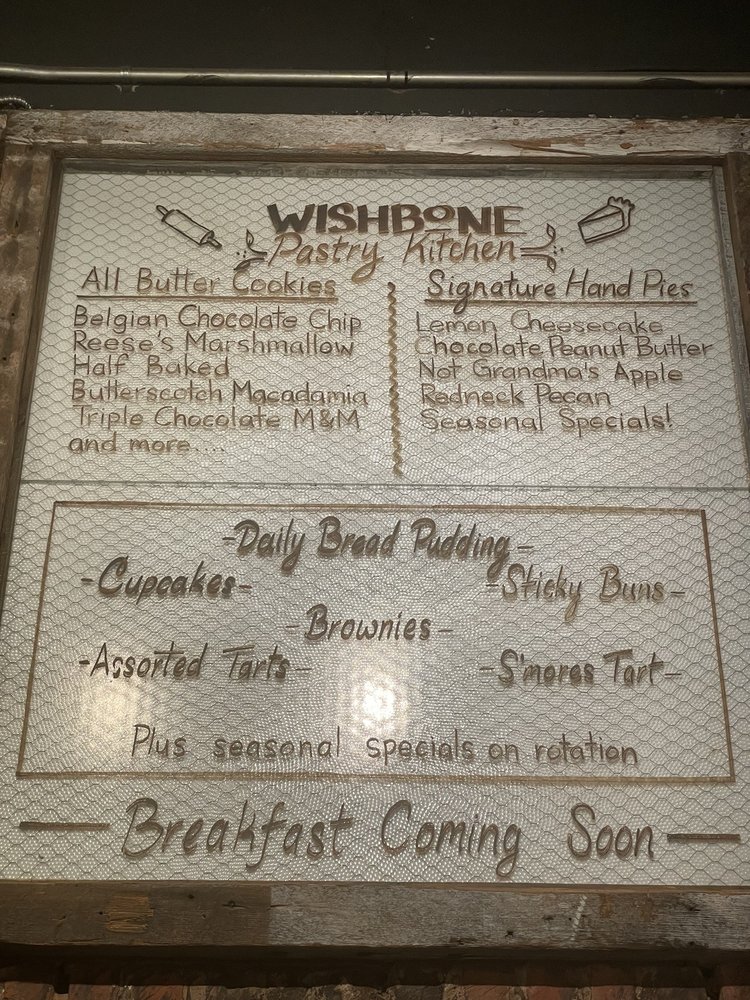 WISHBONE
Pastry Kitchen
All Butter Cookies
Belgian Chocolate Chip
Reese's Marshmallow
Half Baked
Butterscotch Macadamia
Triple Chocolate M&M
and more....
Signature Hand Pies
Lemon Cheesecake
Chocolate Peanut Butter
Not Grandma's Apple
Redneck Pecan
Seasonal Specials!
-Daily Bread Pudding-
-Cupcakes-
-Sticky Buns-
-Brownies-
-Assorted Tarts-
-S'mores Tart-
Plus seasonal specials on rotation
Breakfast Coming Soon